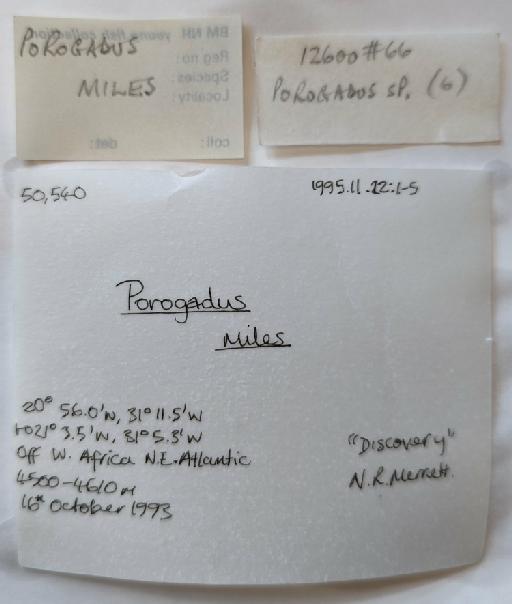 POROGADUS
MILES
BM NH young fish collection
Reg no:
Species:
Locality:
coll: det:
12600#66
POROGADUS SP. (6)
50,540 1995.11.22:1-5
Porogadus
Miles
20° 56.0'N, 31° 11.5'W
to 21° 3.5'N, 31° 5.3'W
Off W. Africa N.E. Atlantic
4500-4610m
16th October 1993
"Discovery"
N.R. Merrett.